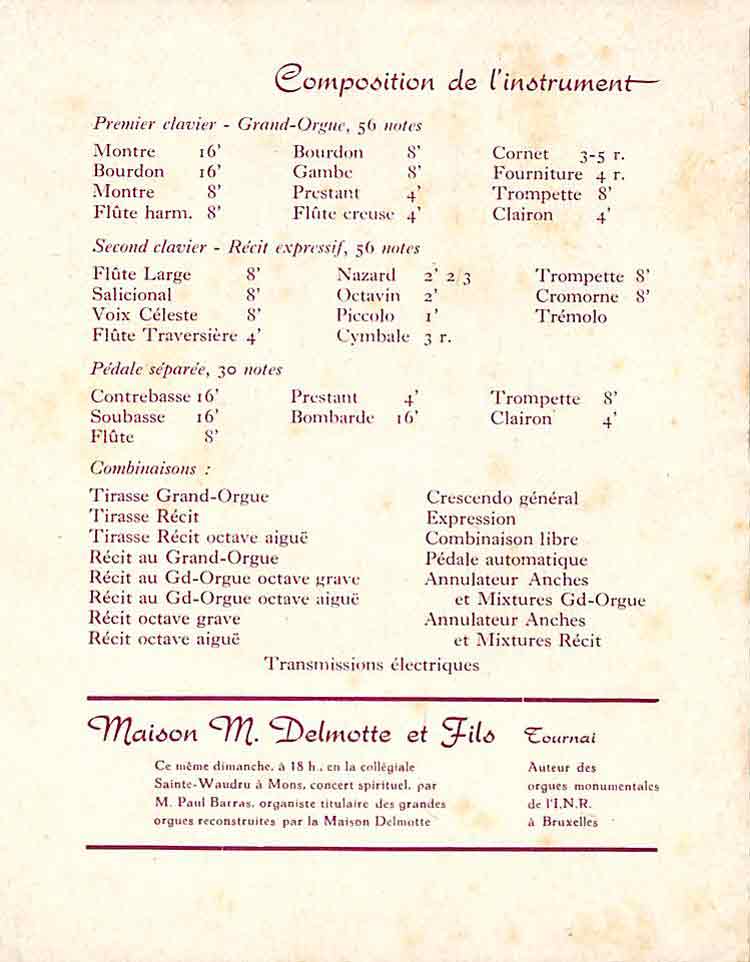 Composition de l'instrument
Premier clavier - Grand-Orgue, 56 notes
Montre 16' Bourdon 8' Cornet 3-5 r.
Bourdon 16' Gambe 8' Fourniture 4 r.
Montre 8' Prestant 4' Trompette 8'
Flûte harm. 8' Flûte creuse 4' Clairon 4'
Second clavier - Récit expressif, 56 notes
Flûte Large 8' Nazard 2' 2/3 Trompette 8'
Salicional 8' Octavin 2' Cromorne 8'
Voix Céleste 8' Piccolo 1' Trémolo
Flûte Traversière 4' Cymbale 3 r.
Pédale séparée, 30 notes
Contrebasse 16' Prestant 4' Trompette 8'
Soubasse 16' Bombarde 16' Clairon 4'
Flûte 8'
Combinaisons :
Tirasse Grand-Orgue Crescendo général
Tirasse Récit Expression
Tirasse Récit octave aiguë Combinaison libre
Récit au Grand-Orgue Pédale automatique
Récit au Gd-Orgue octave grave Annulateur Anches
Récit au Gd-Orgue octave aiguë et Mixtures Gd-Orgue
Récit octave grave Annulateur Anches
Récit octave aiguë et Mixtures Récit
Transmissions électriques
Maison M. Delmotte et Fils Tournai
Ce même dimanche, à 18 h., en la collégiale
Sainte-Waudru à Mons, concert spirituel, par
M. Paul Barras, organiste titulaire des grandes
orgues reconstruites par la Maison Delmotte
Auteur des
orgues monumentales
de l'I.N.R.
à Bruxelles